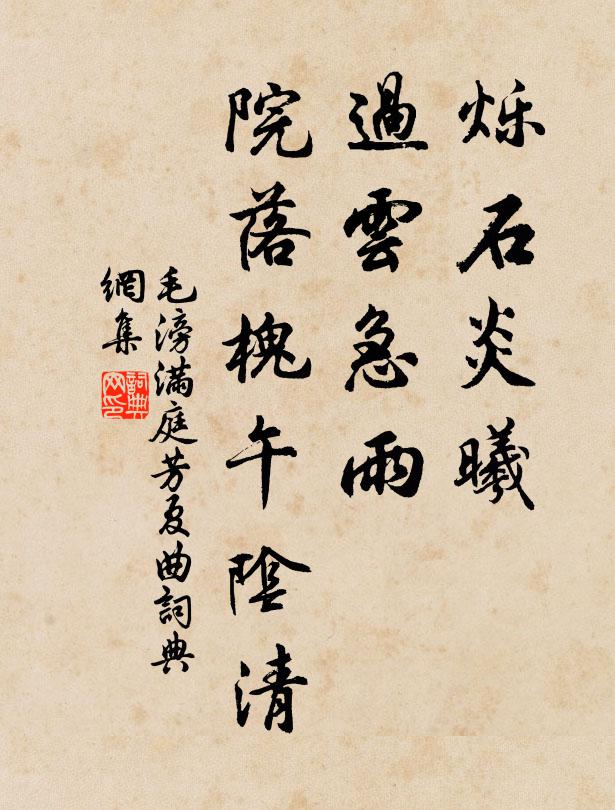 烁石炎曦
過雲急雨
院落槐午陰清
毛滂滿庭芳夏曲詞典
網集
詞典
网印